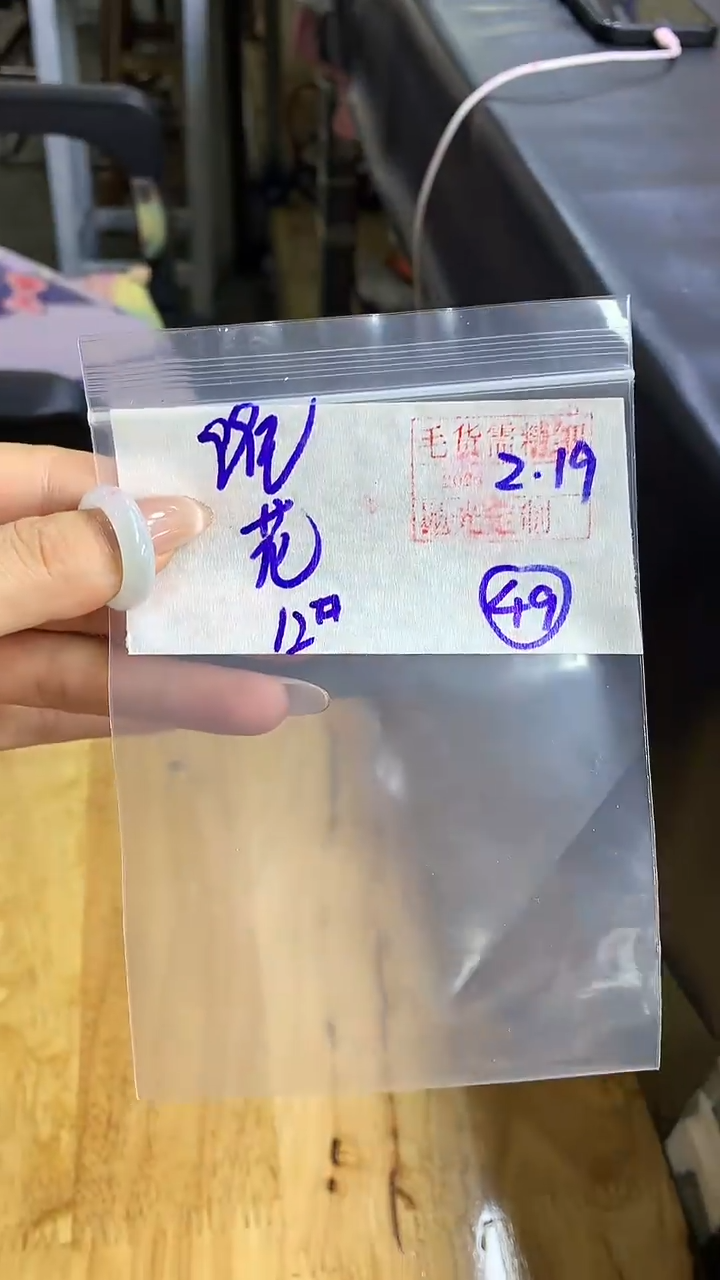 花
12口
毛货需精细
2.19
抛光定制
49